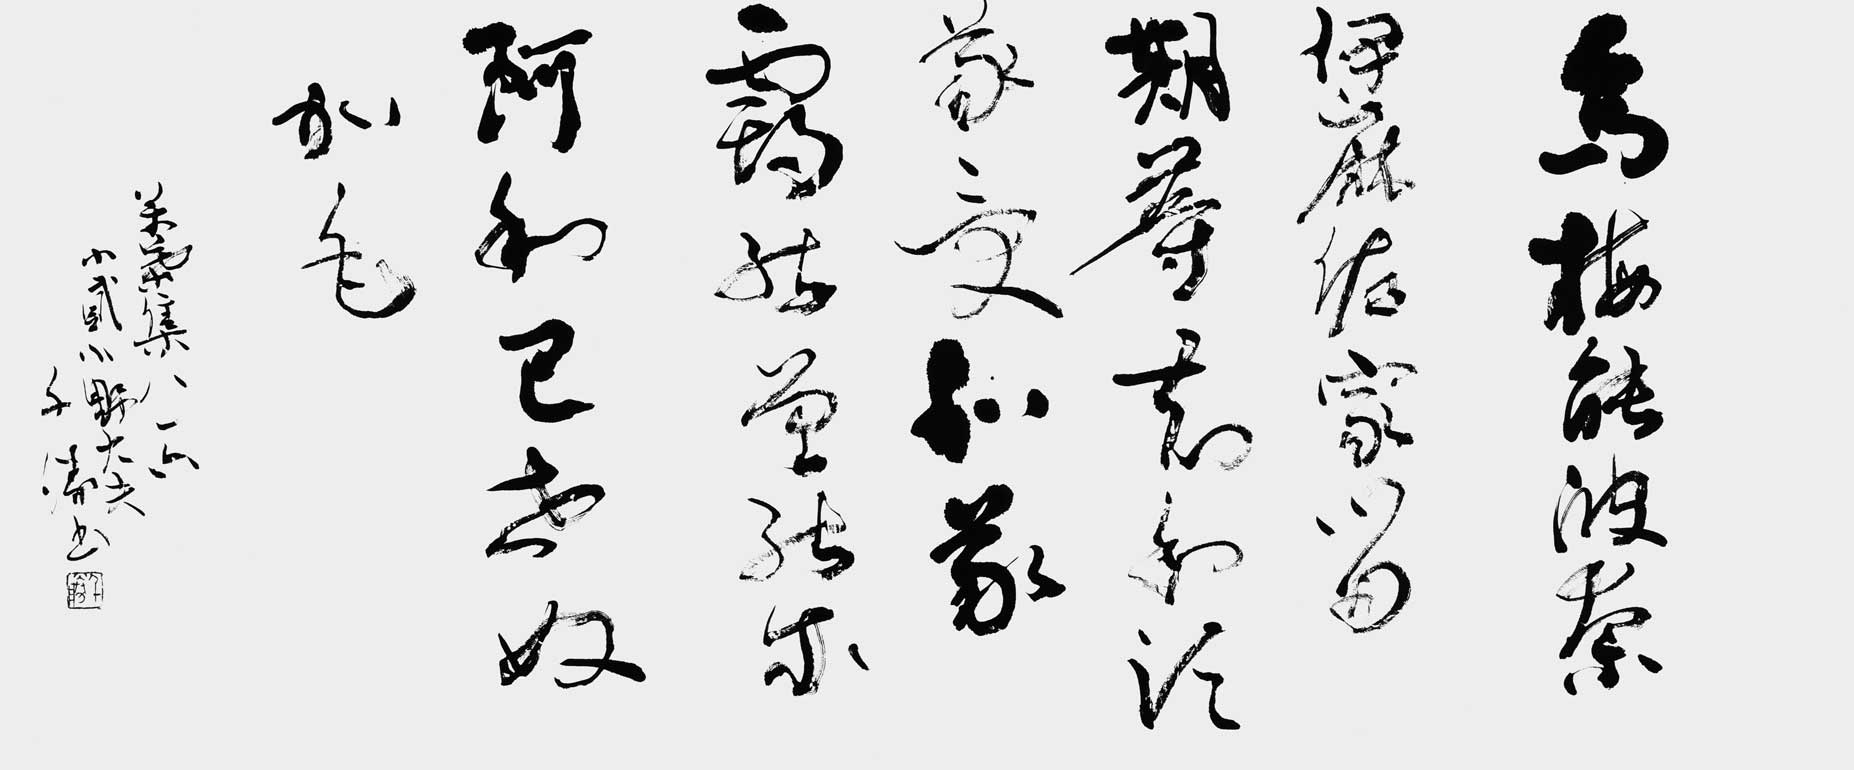 烏梅能波奈
伊麻佐家留
期等知利須
義受和我
覇能曽能尓
阿利己世奴
加毛
萬葉集八一六
小貳小野大夫
千書